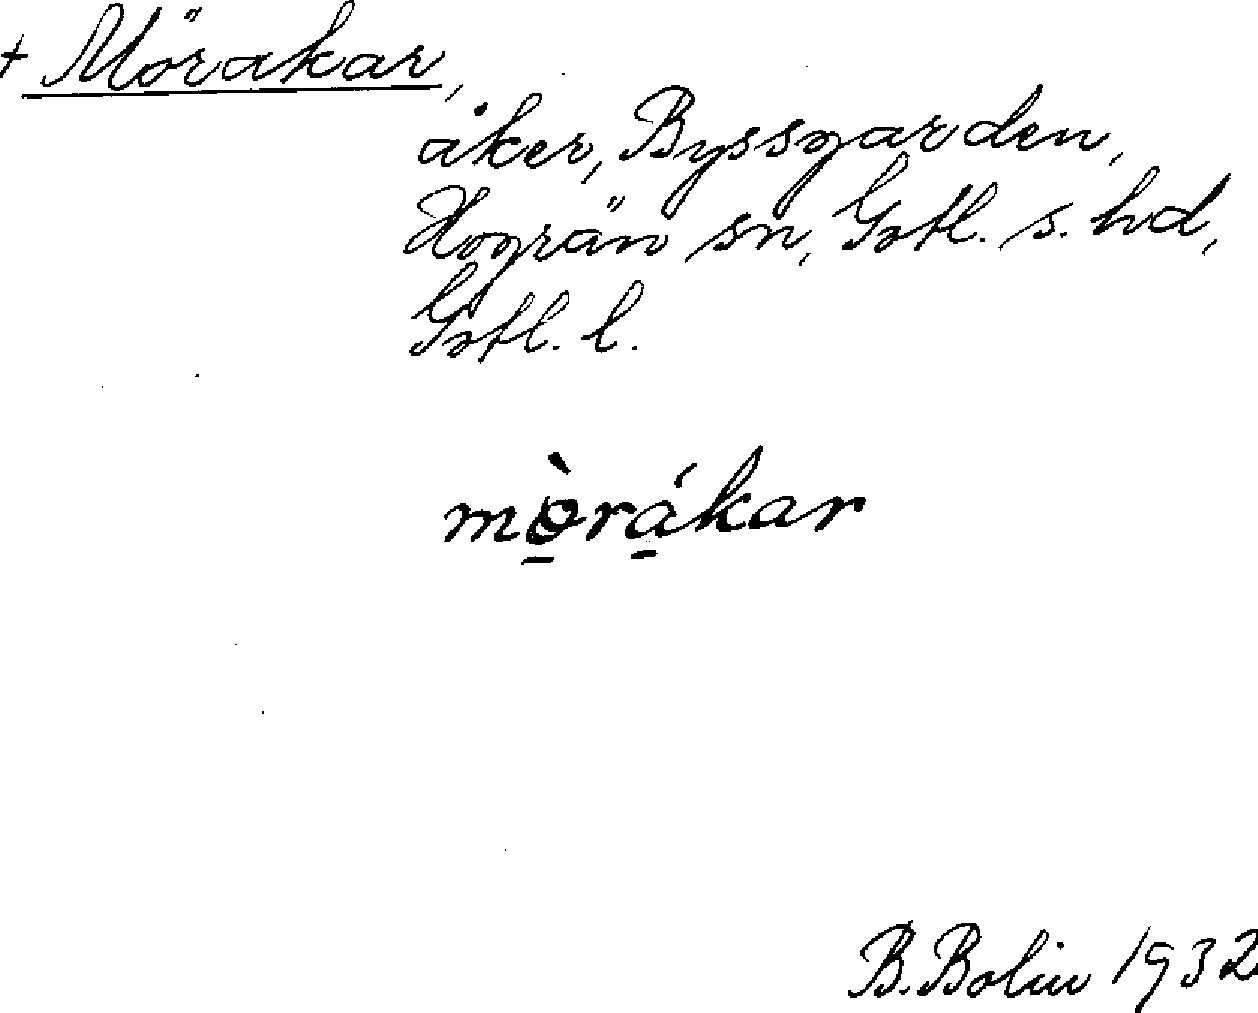 + Mörakar,
åker, Byssgarden,
Hogrän sn, Gotl. s. hd,
Gotl. l.
mò̱rá̱kar
B. Bolin 1932